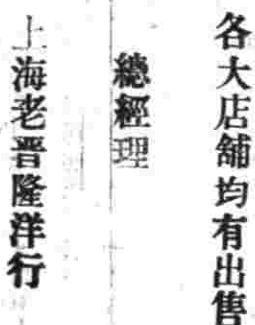 各大店舖均有出售
總經理
上海老晋隆洋行